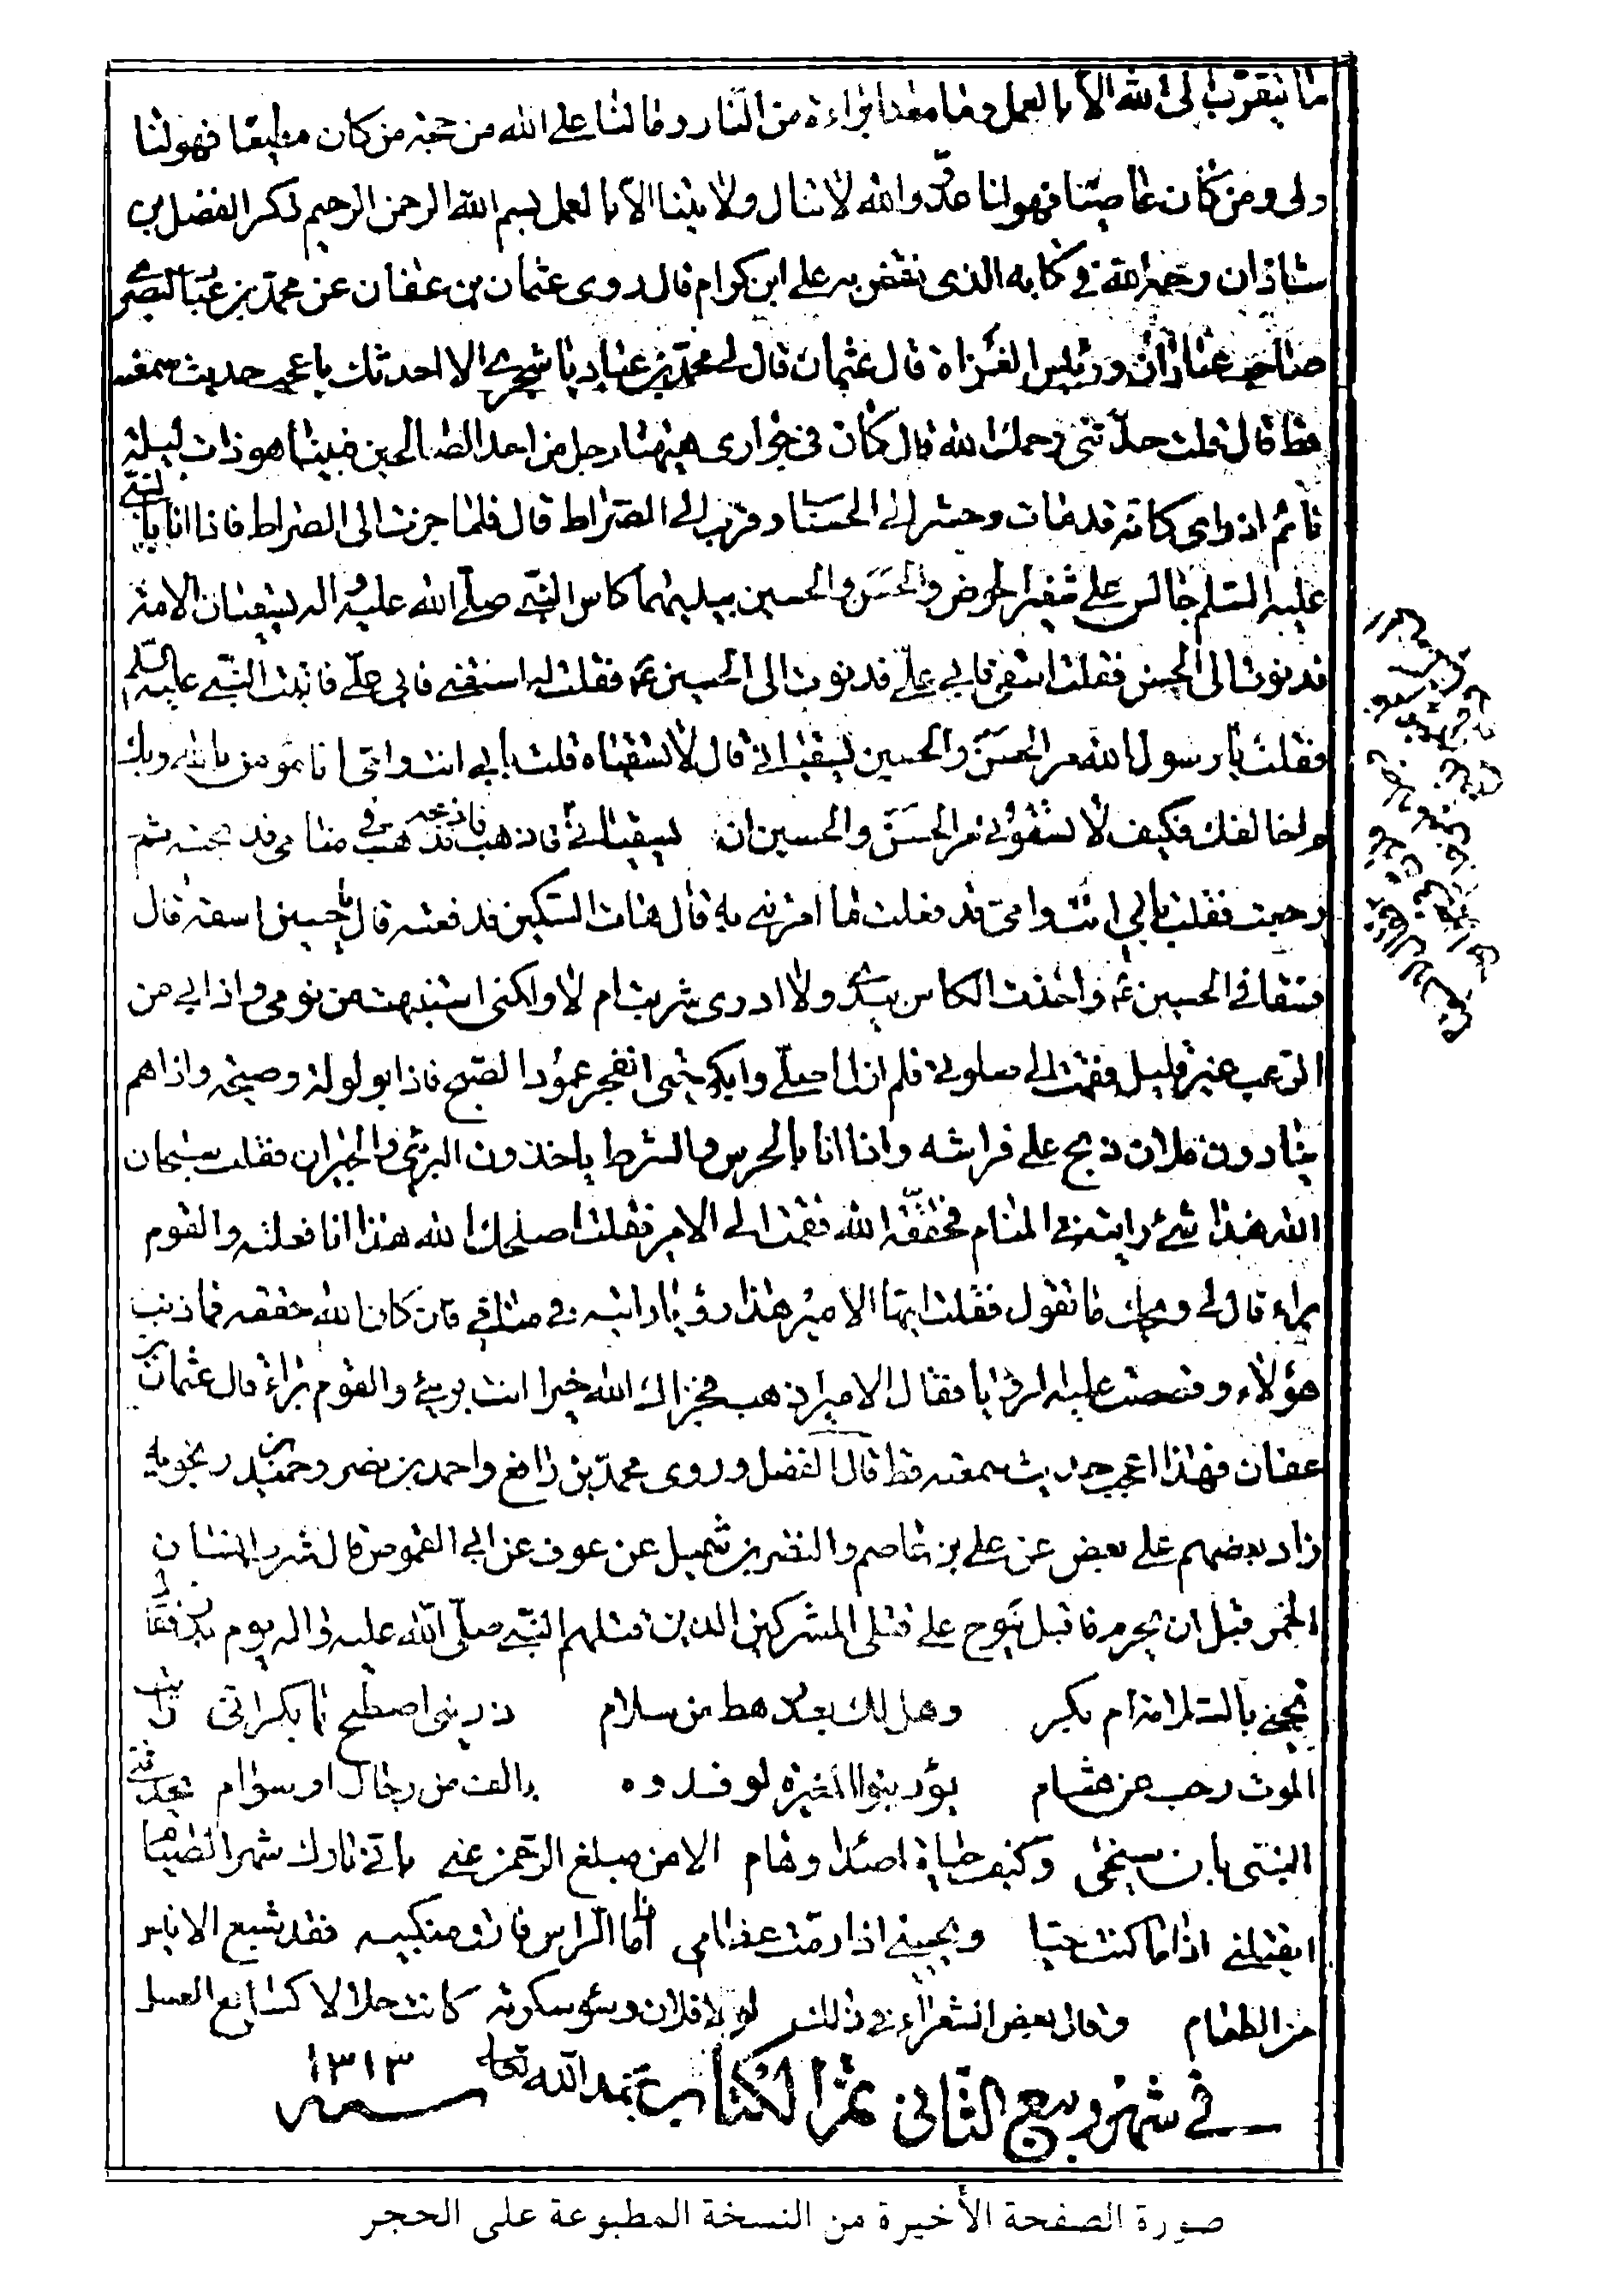 ما يتقرب الى الله الا بالعمل وما معنا براءة من النار وما لنا على الله من حجة من كان مطيعا فهو لنا
ولى ومن كان عاصيا فهو لنا عدو والله لا تنال ولايتنا الا بالعمل بسم الله الرحمن الرحيم ذكر الفضل بن
شاذان رحمه الله في كتابه الذى نقض به على ابن كرام قال روى عثمان بن عفان عن محمد بن عباد البصرى
صاحب عبادان ورئيس الغزاة قال عثمان قال لى محمد بن عباد يا شجرى الا احدثك باعجب حديث سمعته
قط قال قلت حدثنى رحمك الله قال كان في جوارى هيهنا رجل من احد الصالحين فبينا هو ذات ليلة
نائم اذ راى كانه قد مات وحشر الى الحساب وقرب الى الصراط قال فلما جزت الى الصراط فاذا انا بالنبي
عليه السلم جالس على شفير الحوض والحسن والحسين بيديهما كاس النبي صلى الله عليه واله يسقيان الامة
فدنوت الى الحسن فقلت اسقنى فابى على فدنوت الى الحسين ع فقلت له اسقنى فابى على فاتيت النبي عليه السلم
فقلت يا رسول الله مر الحسن والحسين يسقيانى قال لا تسقياه قلت بابى انت وامى انا مؤمن بالله وبك
لم اخالفك فكيف لا تسقونى مر الحسن والحسين ان يسقيانى قال فاذهب فاذبحه فذهبت في منامى فذبحته ثم
رجعت فقلت بابى انت وامى قد فعلت ما امرتنى به قال هات السكين فدفعته قال يا حسين اسقه قال
فسقانى الحسين ع واخذت الكاس بيدى ولا ادرى شربت ام لا ولكنى استنبهت من نومى واذا بى من
الرعب غير قليل فقمت الى صلوتى فلم ازل اصلى وابكى حتى انفجر عمود الصبح فاذا بولولة وصيحة واذا هم
ينادون فلان ذبح على فراشه واذا انا بالحرس والشرط ياخذون البرئ والجيران فقلت سبحان
الله هذا شئ رايته في المنام فحققه الله فقمت الى الامير فقلت اصلحك الله هذا انا فعلته والقوم
براء قال لى ويحك ما تقول فقلت ايها الامير هذا رؤيا رايته في منامى فان كان الله حققه فما ذنب
هؤلاء وقصصت عليه الرؤيا فقال الامير اذهب فجزاك الله خيرا انت برئ والقوم براء قال عثمان بن
عفان فهذا اعجب حديث سمعته قط قال الفضل وروى محمد بن رافع واحمد بن نصر وحميد بن زنجويه
زاد بعضهم على بعض عن على بن عاصم والنضر بن شميل عن عوف عن ابى القموص قال شرب انسان
الخمر قبل ان يحرم فاقبل ينوح على قتلى المشركين الذين قتلهم النبي صلى الله عليه واله يوم بدر فقال
تحيى بالسلامة ام بكر وهل لك بعد رهط من سلام ذرينى اصطبح يا بكر انى رايت
الموت رحب عن هشام يود بنوا المغيرة لو فدوه بالف من رجال او سوام
ان سنحيى وكيف حياة اصداء وهام الا من مبلغ الرحمن عنى بانى تارك شهر الصيام
ايقتلنى اذا ما كنت حيا ويحيينى اذا رمت عظامى اذا ما الراس فارق منكبيه فقد شبع الانيس
من الطعام وقال بعض الشعراء في ذلك لولا فلان وسوء سكرته كانت حلالا كسايغ العسل
في شهر ربيع الثانى تم الكتاب بحمد الله تعالى ١٣١٣
صورة الصفحة الأخيرة من النسخة المطبوعة على الحجر